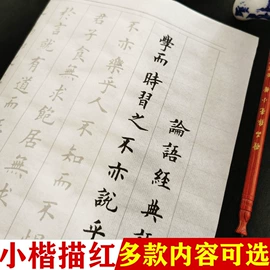 論語經典
學而時習之不亦説乎
不亦樂乎人不知而不
君子食無求飽居無求
於
有道而
小楷描红
多款内容可选